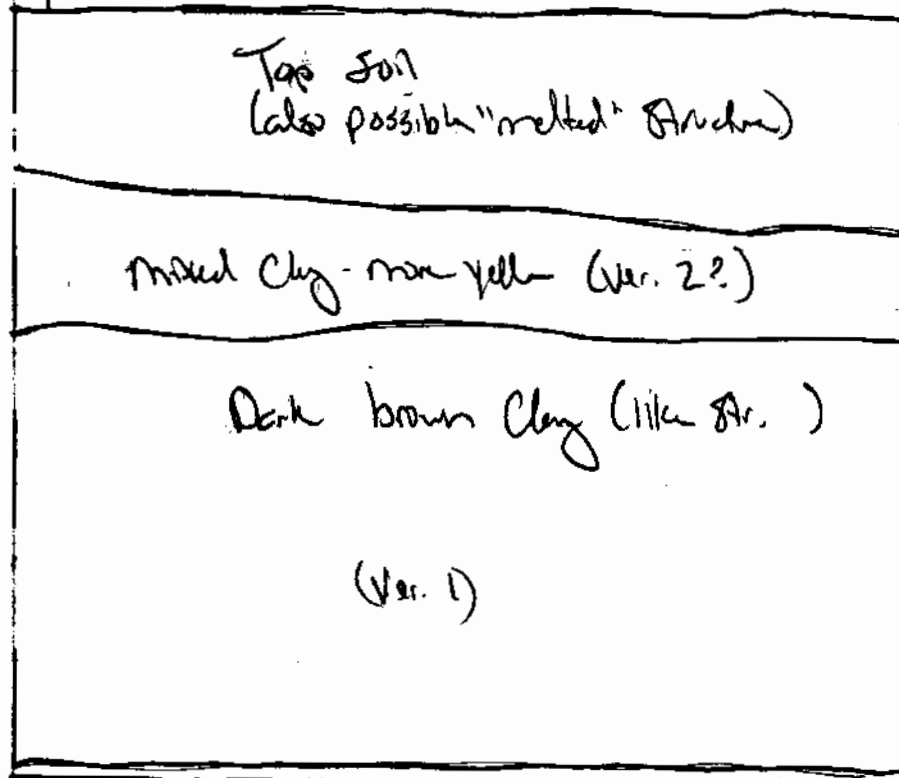 Top Soil
(also possible "melted" structure)
mixed Clay - more yellow (Ver. 2?)
Dark brown Clay (like str. )
(Ver. 1)